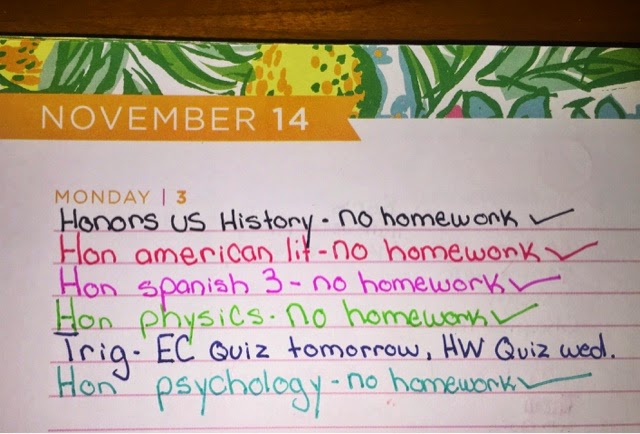 NOVEMBER 14
MONDAY | 3
Honors US History - no homework ✓
Hon american lit - no homework ✓
Hon spanish 3 - no homework ✓
Hon physics - no homework ✓
Trig - EC Quiz tomorrow, HW Quiz wed.
Hon psychology - no homework ✓